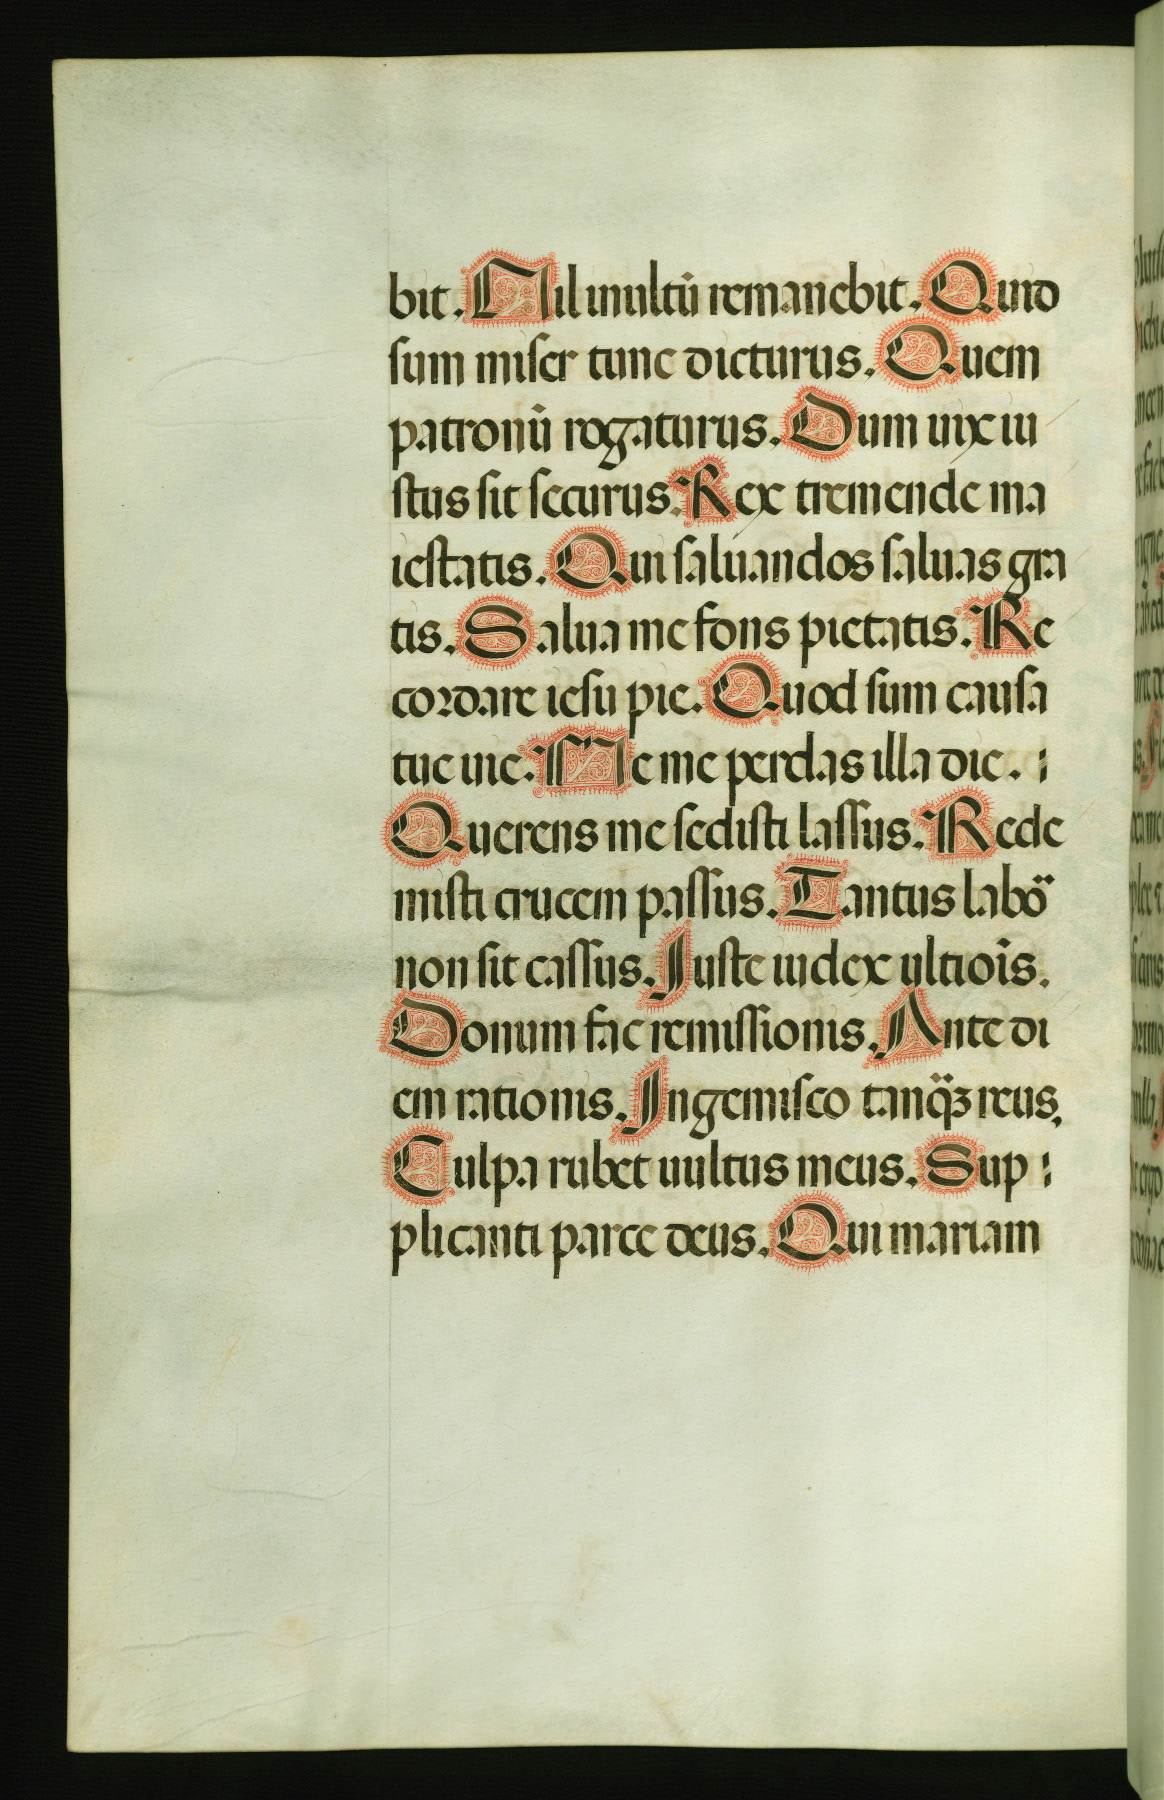 bit. Nil inultū remanebit. Quid
sum miser tunc dicturus. Quem
patronū rogaturus. Dum uix iu
stus sit securus. Rex tremende ma
iestatis. Qui saluandos saluas gra
tis. Salua me fons pietatis. Re
cordare iesu pie. Quod sum causa
tue uie. Ne me perdas illa die.
Querens me sedisti lassus. Rede
misti crucem passus. Tantus labo᷑
non sit cassus. Juste iudex ultiōis.
Donum fac remissionis. Ante di
em rationis. Ingemisco tanq̃ꝫ reus.
Culpa rubet uultus meus. Sup
plicanti parce deus. Qui mariam